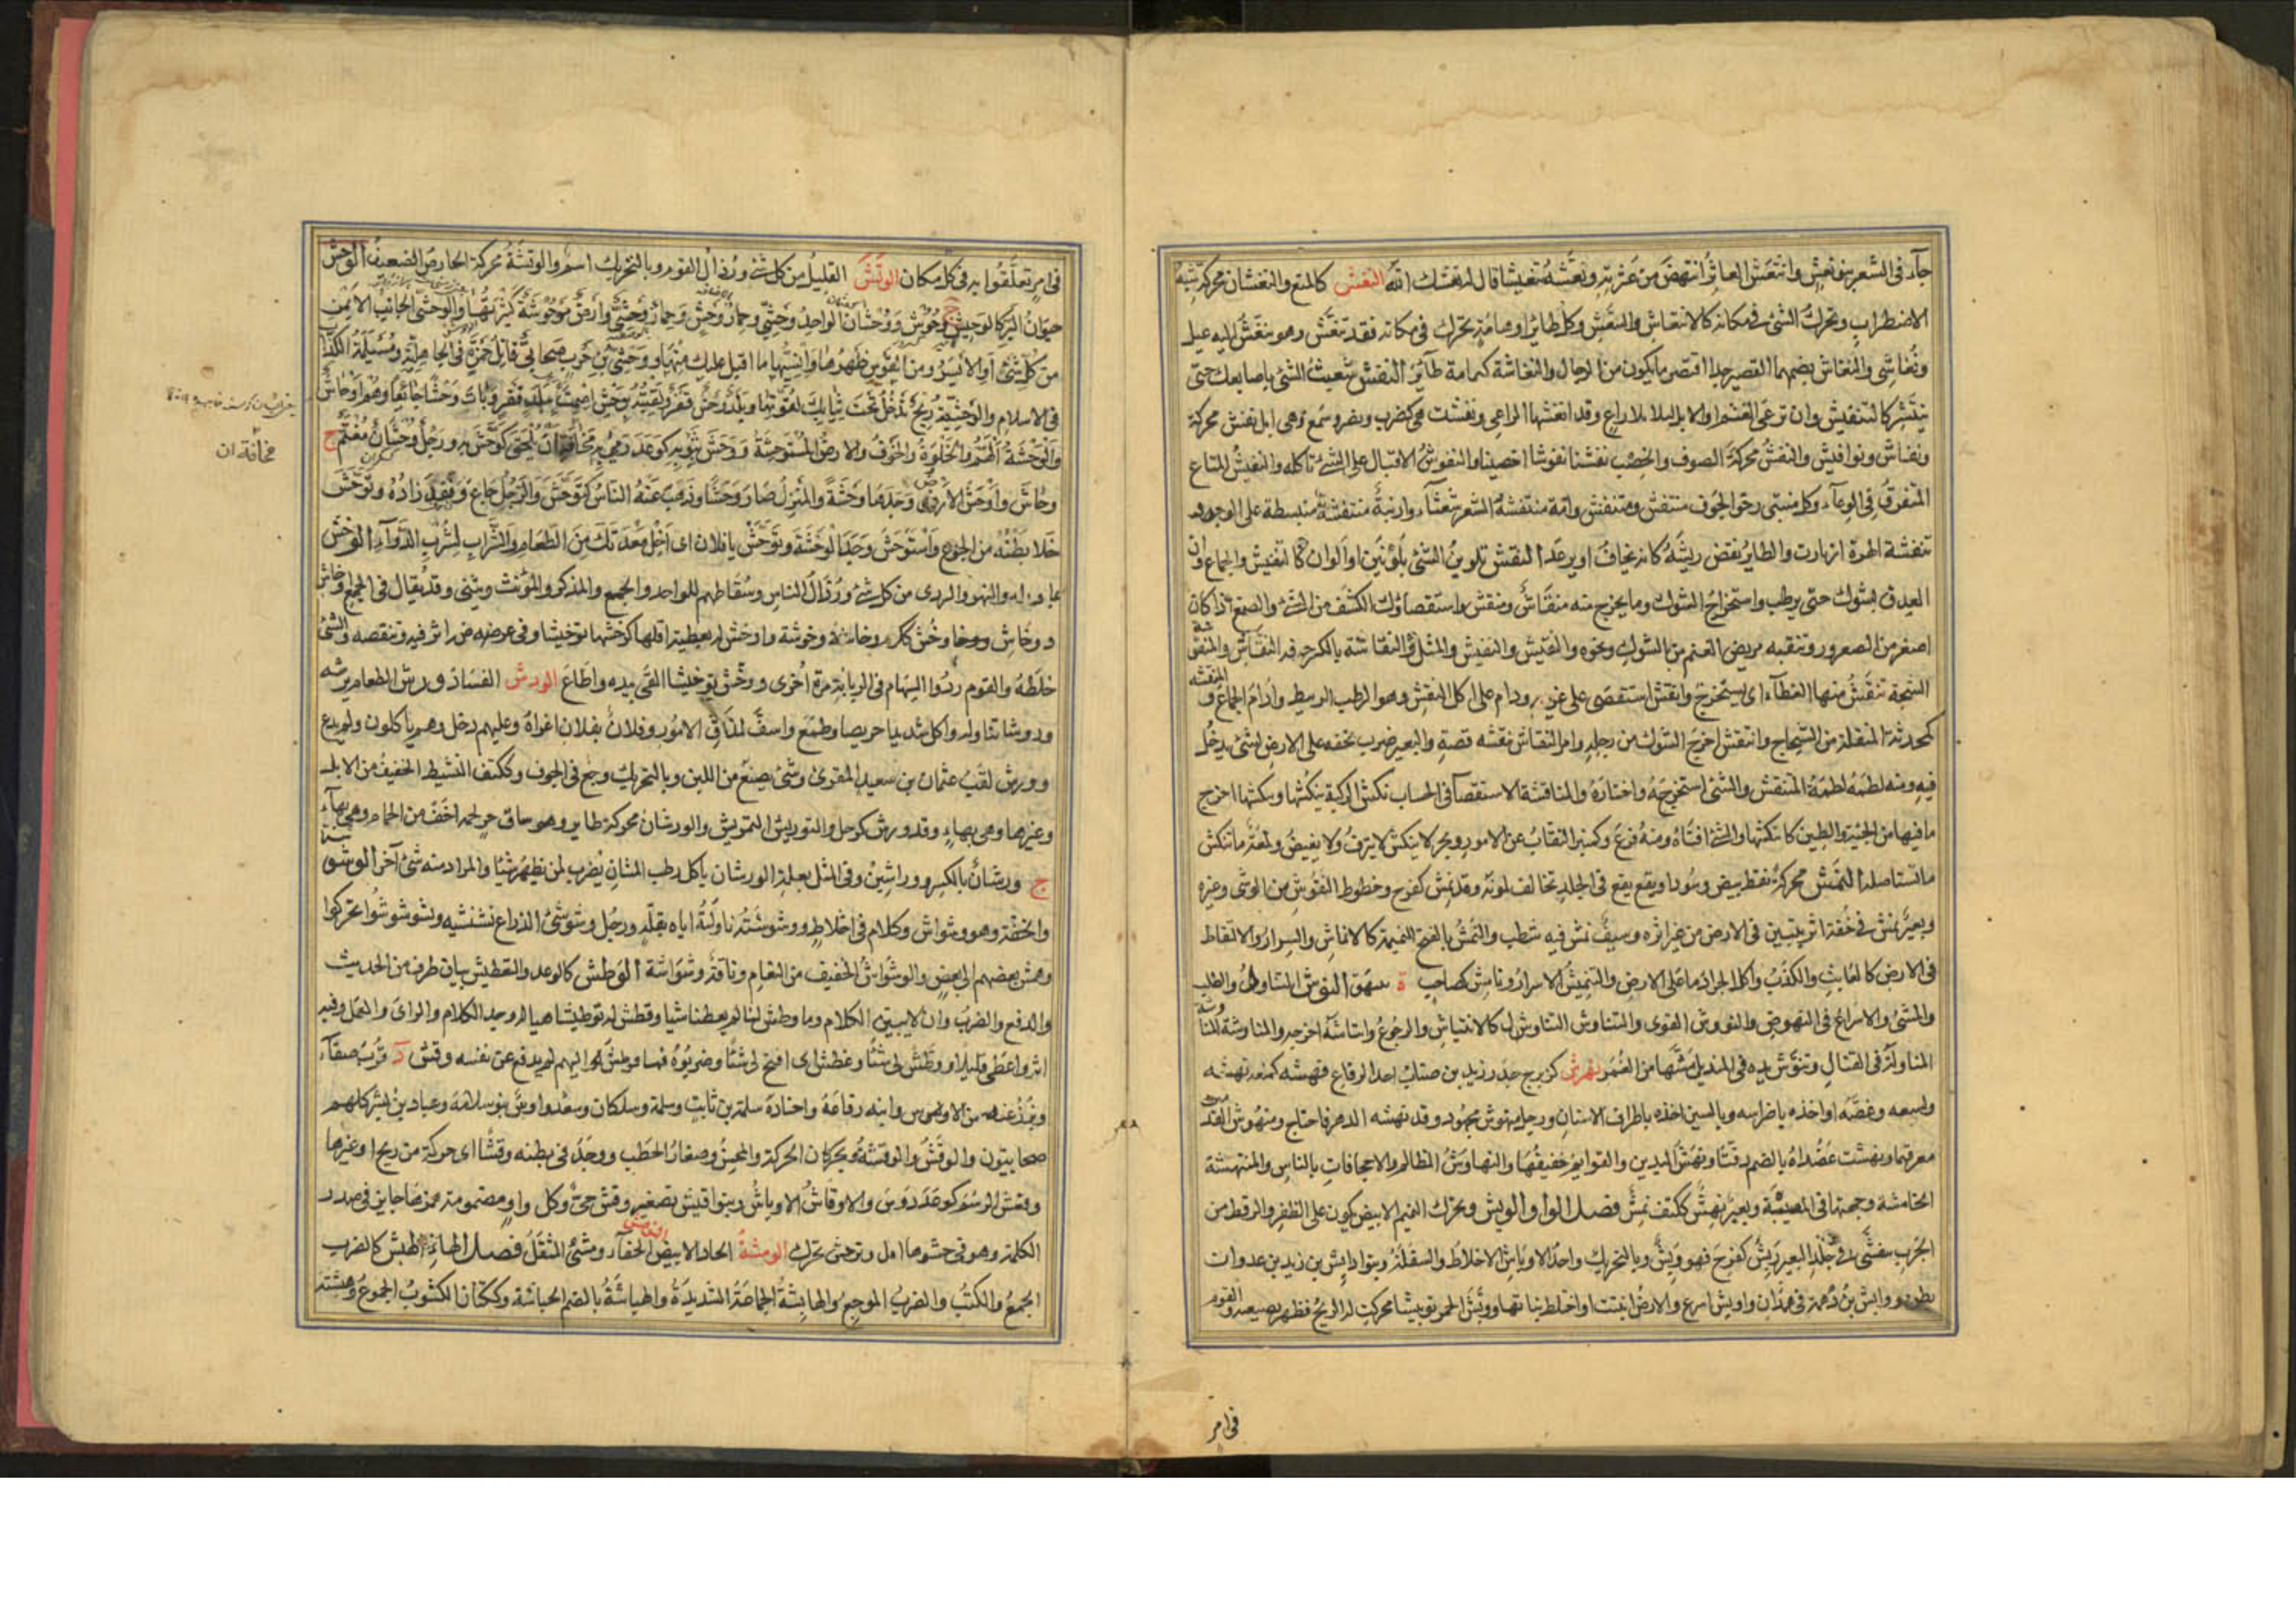 جآء فى الشعر بنو نعش وانتعش العاثر انتهض من عثرته ونعشه تنعيشا قال له نعشك الله النغش كالمنع والنغشان محركة شبه
الاضطراب وتحرك الشئ فى مكانه كالانتغاش والتنغش وكل طائر او هامة تحرك فى مكانه فقد تنغش وهو ينغش اليه يميل
ونغاشى والنغاش بضمهما القصير جدا اقصر ما يكون من الرجال والنغاشة كمامة طآئر النفش تشعيث الشئ باصابعك حتى
ينتشر كالتنفيش وان ترعى الغنم او الابل ليلا بلا راع وقد انفشها الراعى ونفشت هى كضرب ونصر وسمع وهى ابل نفش محركة
ونفاش ونوافش والنفش محركة الصوف والخصب نفشنا نفوشا اخصبنا والنفوش الاقبال على الشئ تاكله والنفيش المتاع
المتفرق فى الوعآء وكل منتبر رخو الجوف منتفش ومتنفش وامة منتفشة الشعر شعثآء وارنبة منتفشة منبسطة على الوجه وقد
تنفشة الهرة ازبارت والطاير نفض ريشه كانه يخاف او يرعد النقش تلوين الشئ بلونين او الوان كالتنقيش والجماع وان
العذق بشوك حتى يرطب واستخراج الشوك وما يخرج منه منقاش ومنقش واستقصاؤك الكشف عن الشئ
اصغر من الصعرور وتنقية مربض الغنم من الشوك ونحوه والنقيش والنفيش والمثل والنقاشة بالكسر حرفة النقاش والمنقش
الشجة تنقش منها العظآم اى يستخرج وانتقش استقصى على غريمه ودام على اكل النقش وهو الرطب الربيط وادام الجماع و المنقشة
كمحدثة المنقلة من الشجاج وانتقش اخرج الشوك من رجله وامر النقاش بنقشه فصه والبعير ضرب بخفه على الارض لشئ يدخل
فيه ومنه لطمه لطمة المنتقش والشئ استخرجه واختاره والمناقشة الاستقصآء فى الحساب نكش الركية ينكشها وينكشها اخرج
ما فيها من الجيئة والطين كانتكشها والشئ افناه ومنه فرغ وكمنبر النقاب عن الامور وبحر لا ينكش لا ينزف ولا يغيض ولمعة ما تنكش
ما تستاصل النمش محركة نقط بيض وسود او بقع يقع فى الجلد تخالف لونه وقد نمش كفرح وخطوط النقوش من الوشى وغيره
وبعير نمش فى خفه اثر يتبين فى الارض من غير اثره وسيف نمش فيه شطب والنمش بالفتح النميمة كالانماش والسرار والالتقاط
فى الارض كالعابث والكذب واكل الجراد ما على الارض والتنميش الاسرار ونامش كصاحب ة بيهق النوش التناول والطلب
والمشى والاسراع فى النهوض والنووش القوى والتناوش التناوش كالانتياش والرجوع وانتاشه اخرجه والمناوشة المناوشة
المناولة فى القتال وتنوش يده فى المنديل مشها من الغمر نهرش كزبرج جد زيد بن ضباب احد الرقاع نهشه كمنعه نهسه
ولسعه وعضه او اخذه باضراسه وبالسين اخذه باطراف الاسنان ورجل منهوش مجهود وقد نهشه الدهر فاحتاج ومنهوش الفخذ
معرقها ونهشت عضداه بالضم دقتا ونهش اليدين والقوايم خفيفها والنهاوش المظالم والاجحافات بالناس والمنتهشة
الخامشة وجهها فى المصيبة وبعير نهش ككتف نمش فصل الواو الوبش ويحرك النمنم الابيض يكون على الظفر والرقط من
الجرب يتفشى فى جلد البعير وبش كفرح فهو وبش وبالتحريك واحد الاوباش الاخلاط والسفلة وبنو وابش بن زيد بن عدوان
بطن ووابش بن دهمة فى همدان واوبش اسرع والارض انبتت او اختلط نباتها ووبش الجمر توبيشا تحركت له الريح فظهر بصيصه والقوم
فى امر
فى امر تعلقوا به فى كل مكان الوتش القليل من كل شئ ورذال القوم وبالتحريك اسم والوتشة محركة الحارض الضعيف الوحش
حيوان البر كالوحيش ج وحوش ووحشان الواحد وحشى وحمار وحش وحمار وحشى وارض موحوشة كثيرتها والوحشى الجانب الايمن
من كل شئ او الايسر ومن القوس ظهرها وانسيها ما اقبل عليك منها ووحشى بن حرب صحابى قاتل حمزة فى الجاهلية ومسيلمة الكذاب
فى الاسلام والوحشية ريح تدخل تحت ثيابك لقوتها وبلد وحش قفر ولقيته بوحش اصمت ببلد قفر وبات وحشا جائعا وهم اوحاش
والوحشة الهم والخلوة والخوف والارض المستوحشة ووحش بثوبه كوعد رمى به مخافة ان يلحق كوحش به ورجل وحشان مغتم ج
وحاشى واوحش الارض وجدها وحشة والمنزل صار وحشا وذهب عنه الناس كتوحش والرجل جاع ونفد زاده وتوحش
خلا بطنه من الجوع واستوحش وجد الوحشة وتوحش يا فلان اى اخل معدتك من الطعام والشراب لشرب الدوآء الوخش
ع او د له والنهر والردى من كل شئ ورذال الناس وسقاطهم للواحد والجمع والمذكر والمؤنث ويثنى وقد يقال فى الجمع اوخاش
خلطه والقوم ردوا السهام فى الربابة مرة اخرى ووخش توخيشا القى بيده واطاع الورش الفساد وورش الطعام يرشه
وروشا تناوله واكل شديدا حريصا وطمع واسف لمداق الامور وفلان بفلان اغراه وعليهم دخل وهم ياكلون ولم يدع
وورش لقب عثمان بن سعيد المقرئ وشئ يصنع من اللبن وبالتحريك وجع فى الجوف وككتف النشيط الخفيف من الابل
وغيرها وهى بهاء وقد ورش كوجل والتوريش التحريش والورشان محركة طاير وهو ساق حر لحمه اخف من الحمام وهى بهآء
ج ورشان بالكسر ووراشين وفى المثل بعلة الورشان ياكل رطب المشان يضرب لمن يظهر شيئا والمراد منه شئ آخر الوشوشة
والخفة وهو وشواش وكلام فى اختلاط ووشوشته ناولته اياه بقلة ورجل وشوشى الذراع نشنشيه وتوشوشوا تحركوا
وهمس بعضهم الى بعض والوشواش الخفيف من النعام وناقة وشواشة الوطش كالوعد والتوطيش بيان طرف من الحديث
والدفع والضرب وان لا يبين الكلام وما وطش لنا لم يعطنا شيا ووطش له توطيشا هيا له وجه الكلام والراى والعمل وفيه
اثر واعطى قليلا ووطش لى شيئا وغطش اى افتح لى شيئا وضربوه فما وطش اليهم لم يدفع عن نفسه وقش د قرب صنعآء
وقش من الاوس وابنه رفاعة واحفاده سلمة بن ثابت وسلمة وسلكان وسعد واوس بنو سلامة وعباد بن بشر كلهم
صحابيون والوقش والوقشة ويحركان الحركة والحس وصغار الحطب ووجد فى بطنه وقشا اى حركة من ريح او غيرها
ووقش الرسم كوعد درس والاوقاش الاوباش وبنو اقيش تصغير وقش حى وكل واو مضمومة همزها جايز فى صدر
الكلمة وهو فى حشوها اقل وتوقش تحرك الومشة الخال الابيض الخفآء ومشئ المثقل فصل الهاء الهبش كالضرب
الجمع والكسب والضرب الموجع والهابشة الجماعة الشديدة والهباشة بالضم الحباشة وككتان الكسوب الجموع وهبشته
مخافة ان